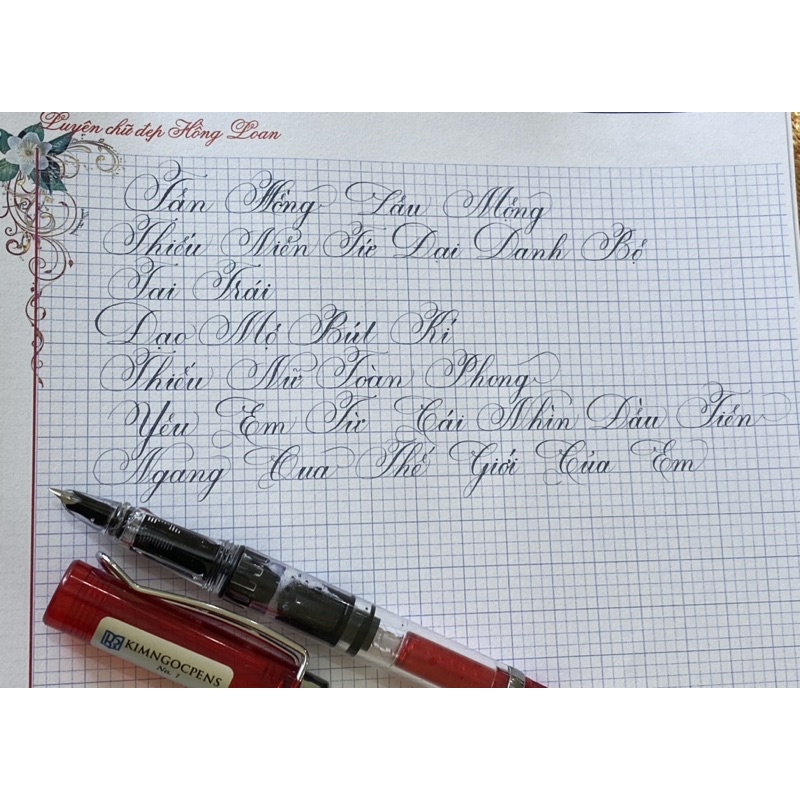 Luyện chữ đẹp Hồng Loan
Tân Hồng Lâu Mộng
Thiếu Niên Tứ Đại Danh Bộ
Tai Trái
Đạo Mộ Bút Kí
Thiếu Nữ Toàn Phong
Yêu Em Từ Cái Nhìn Đầu Tiên
Ngang Qua Thế Giới Của Em
KIMNGOCPENS
No. 1